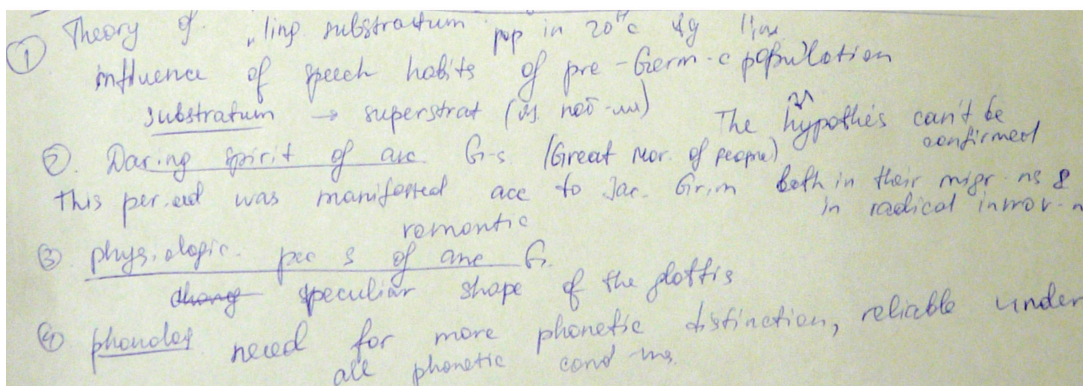 ① Theory of „ling substratum pop in 20th c
influence of speech habits of pre-Germ-c population
substratum → superstrat The hypothes can't be
confirmed
② Daring spirit of anc G-s (Great Mor. of people)
This period was manifested acc to Jac. Grim both in their migr-ns &
romantic in radical innov-n
③ physiologic. pec s of anc G.
speculiar shape of the glottis
④ phonolog need for more phonetic distinction, reliable under
all phonetic cond-ns.